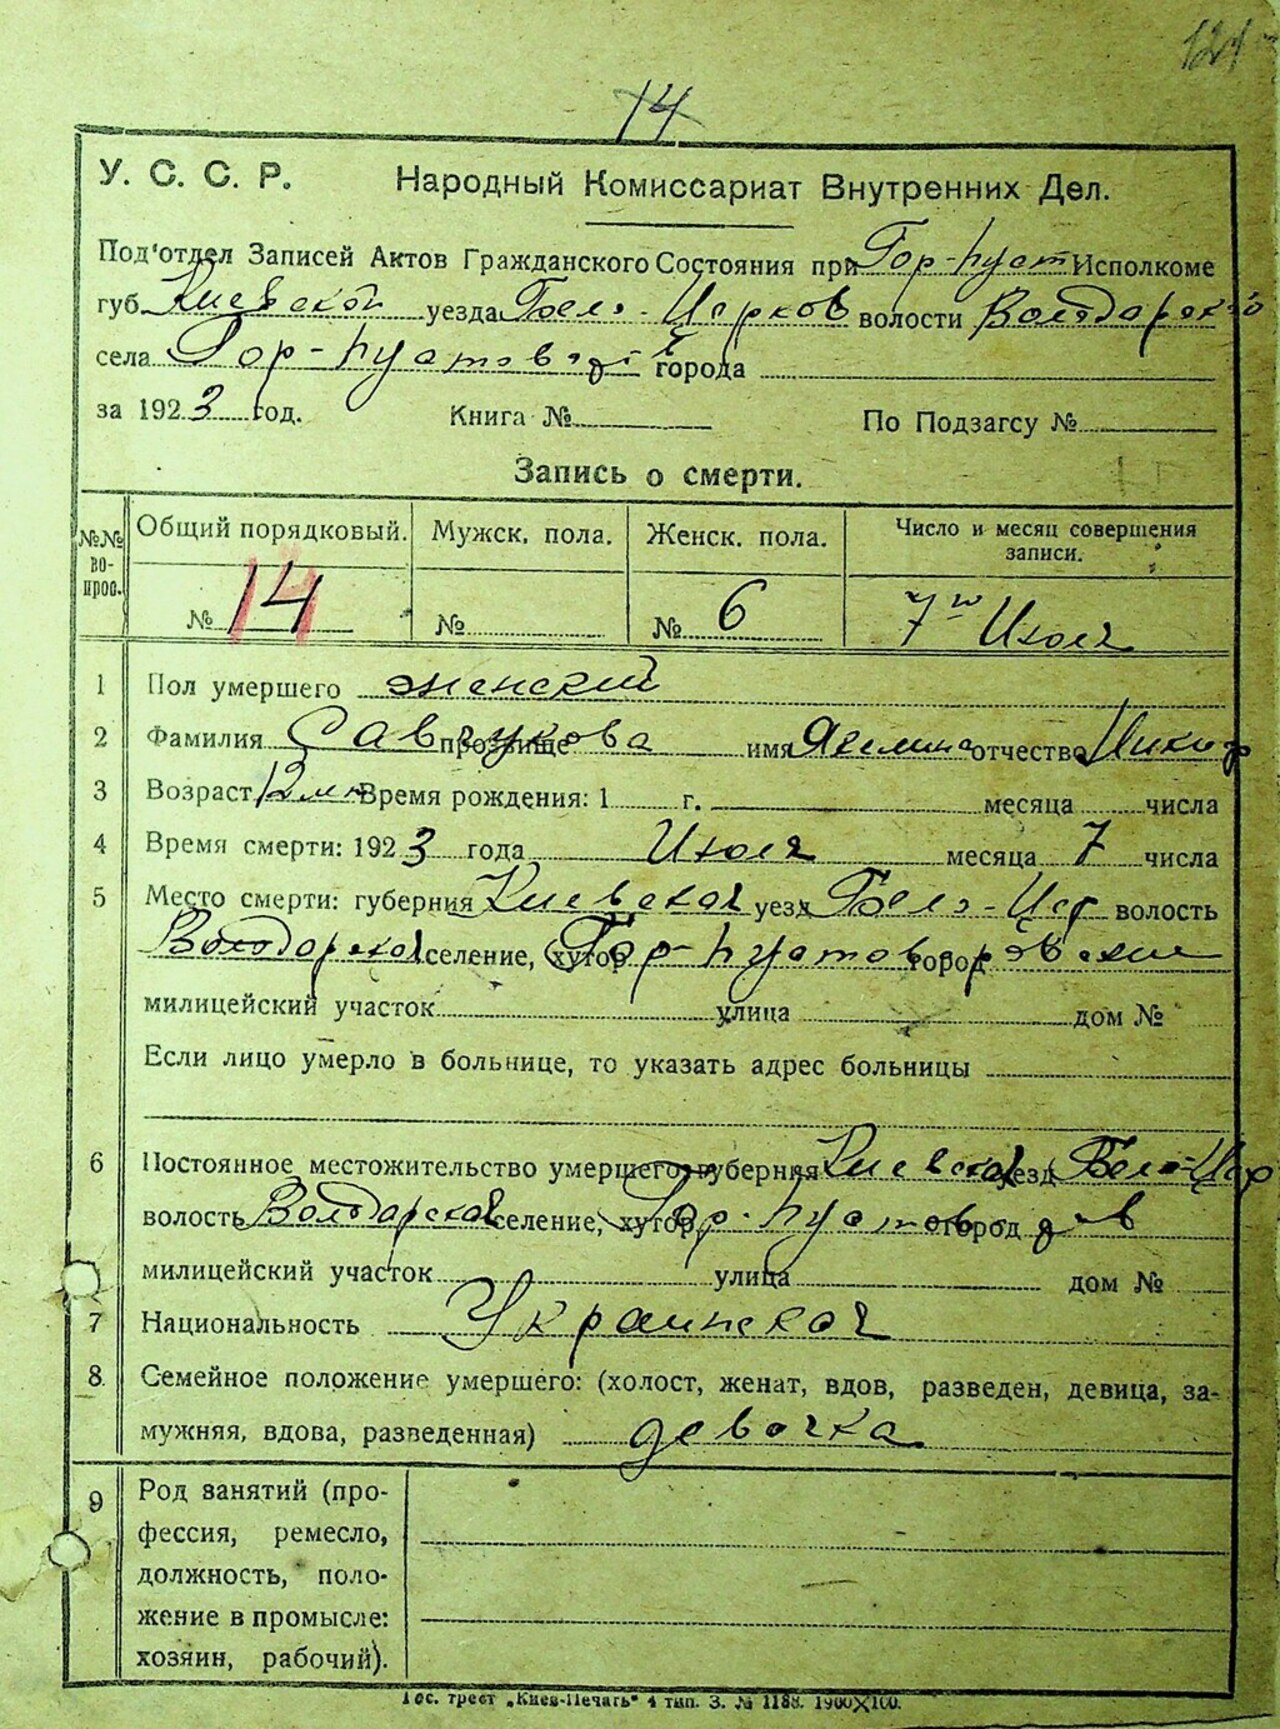 121
14
У. С. С. Р. Народный Комиссариат Внутренних Дел.
Под'отдел Записей Актов Гражданского Состояния при Гор-Пуст Исполкоме
губ. Киевской уезда Бело-Церков волости Володарской
села Гор-Пустовской города
за 1923 год. Книга № По Подзагсу №
Запись о смерти.
№№ вопрос. Общий порядковый. Мужск. пола. Женск. пола. Число и месяц совершения записи.
№ 14 № № 6 7го Июля
1 Пол умершего женский
2 Фамилия прозвище имя отчество
3 Возраст 12 Время рождения: 1 г. месяца числа
4 Время смерти: 1923 года Июля месяца 7 числа
5 Место смерти: губерния Киевская уезд Бело-Цер волость
Володарская селение, (хутор город
милицейский участок улица дом №
Если лицо умерло в больнице, то указать адрес больницы
6 Постоянное местожительство умершего: губерния Киевская уезд Бело-Цер
волость Володарская селение, хутор, Гор-Пустов город
милицейский участок улица дом №
7 Национальность Украинская
8 Семейное положение умершего: (холост, женат, вдов, разведен, девица, за-
мужняя, вдова, разведенная) девочка
9 Род занятий (про-
фессия, ремесло,
должность, поло-
жение в промысле:
хозяин, рабочий).
Гос. трест „Киев-Печать" 4 тип. З. № 1188. 1900X100.